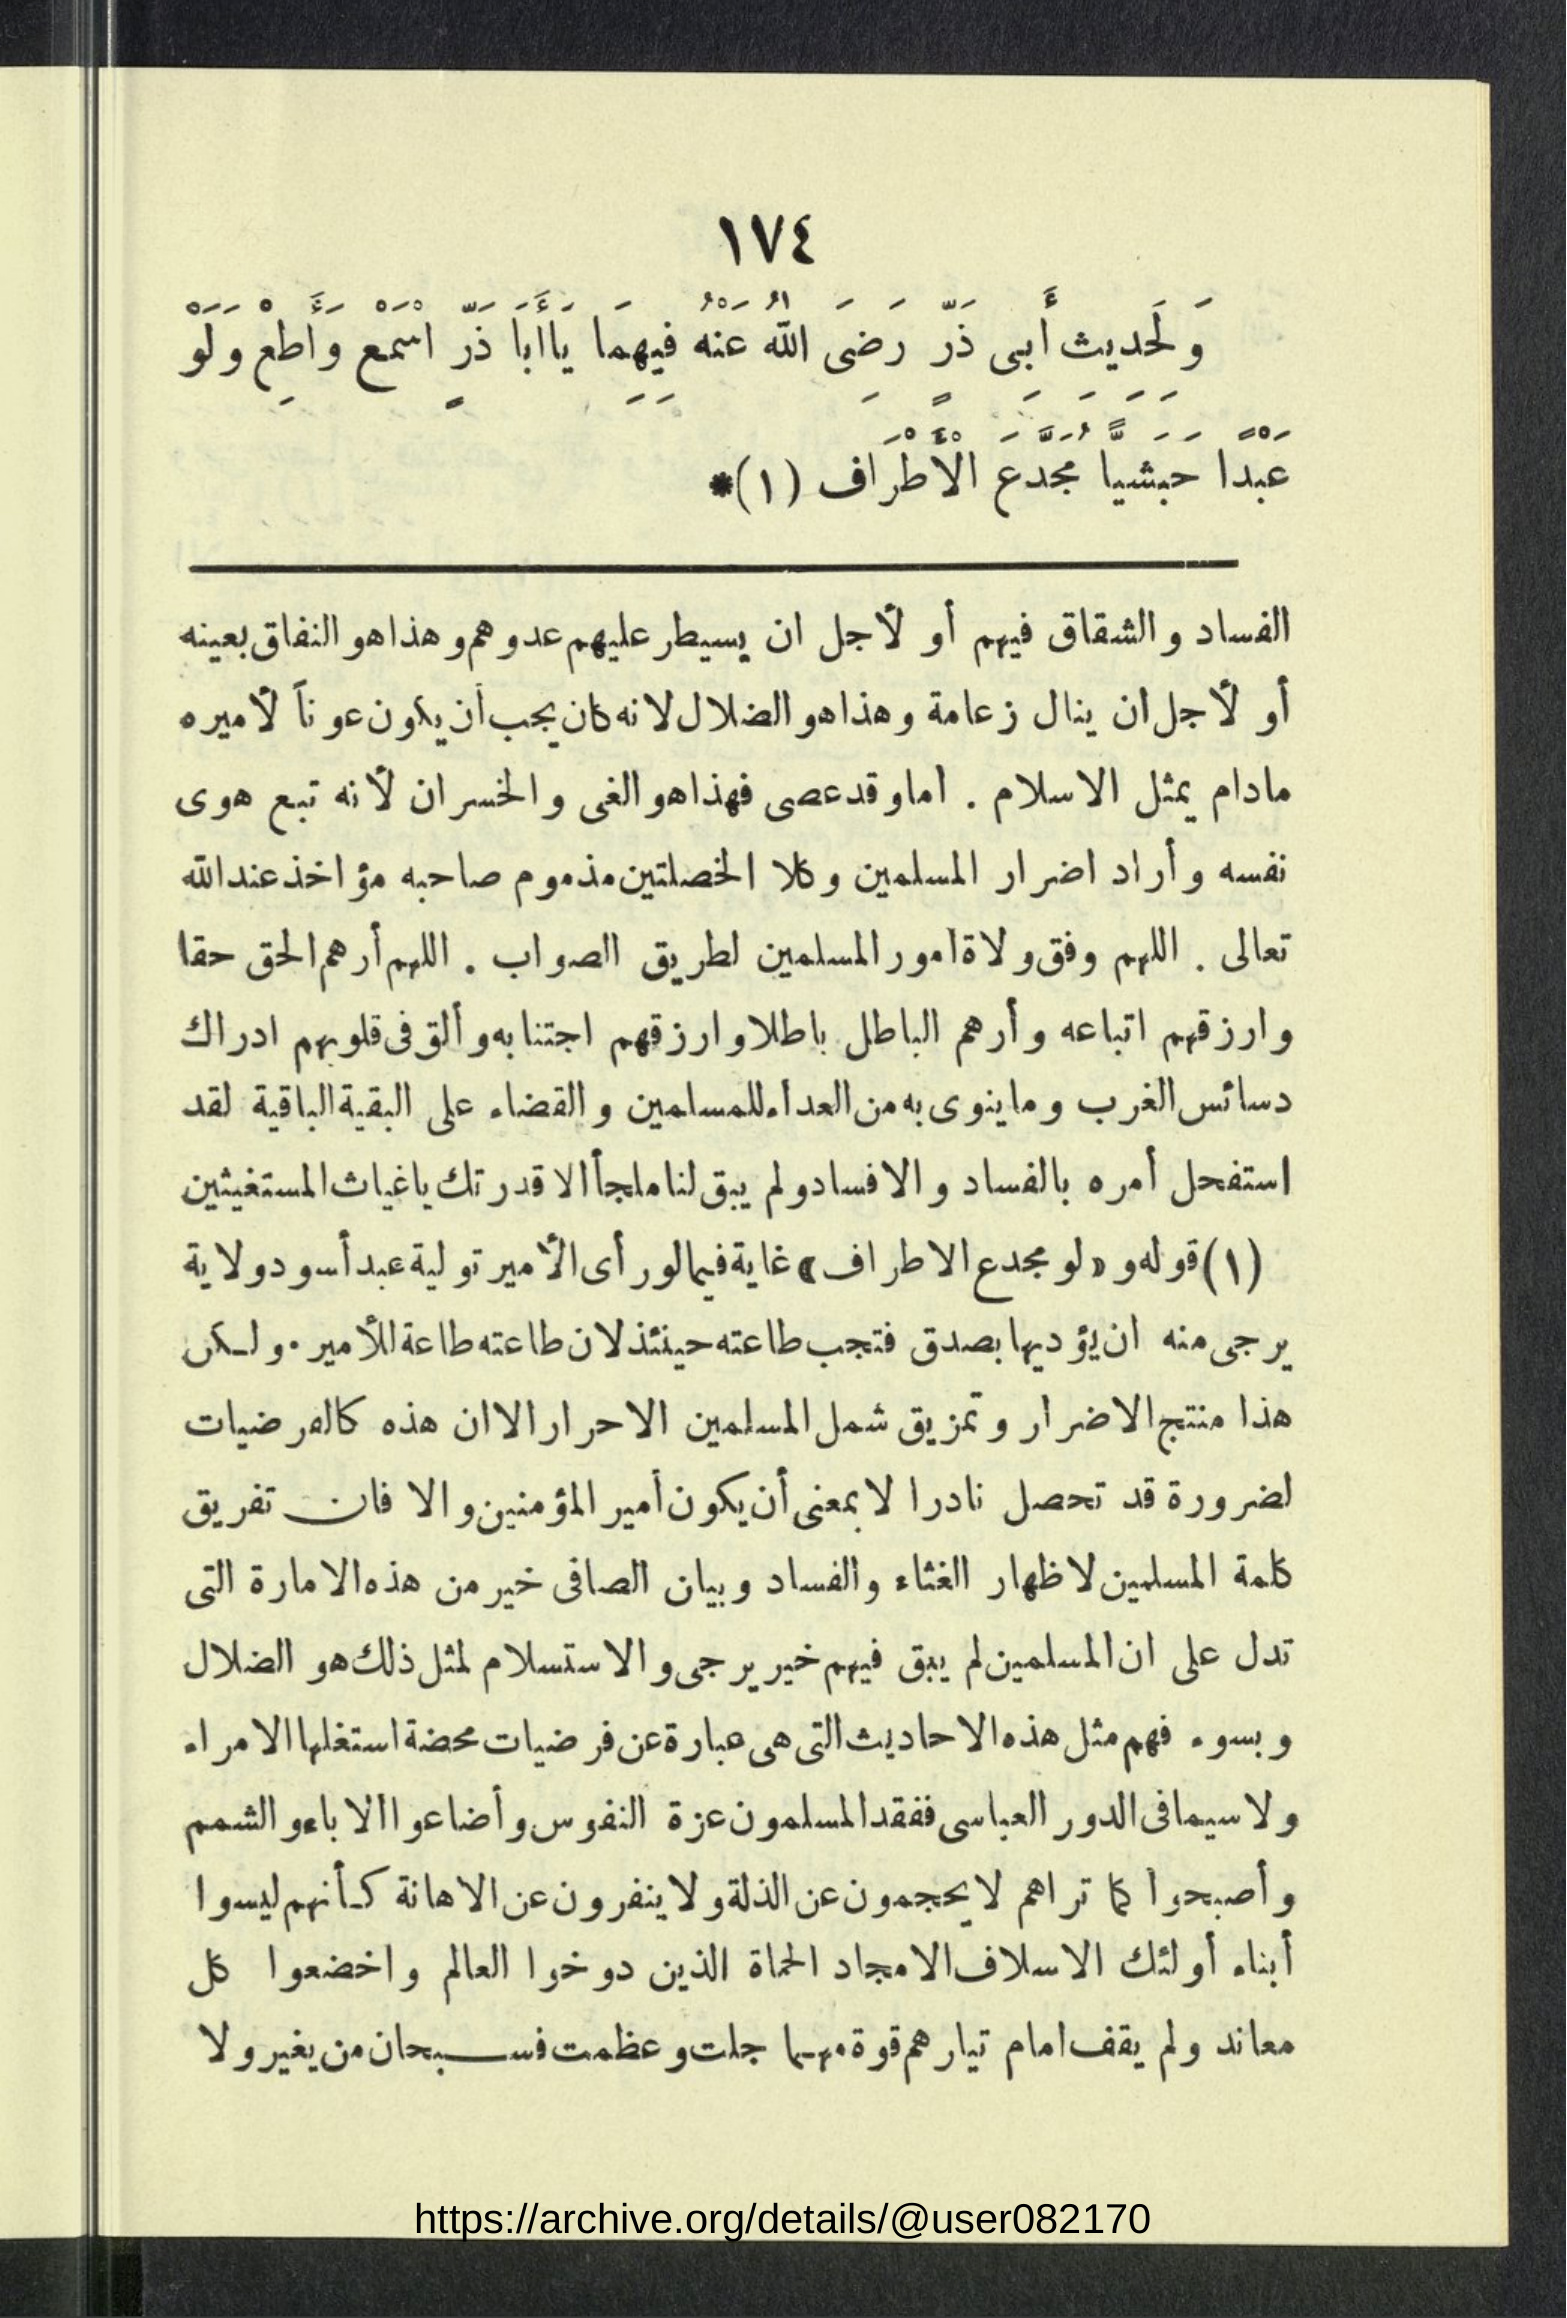 ١٧٤
وَلَحَدِيثِ أَبِى ذَرٍّ رَضِىَ اللهُ عَنْهُ فِيهِمَا يَاأَبَا ذَرٍّ اسْمَعْ وَأَطِعْ وَلَوْ
عَبْدًا حَبَشِيًّا مُجَدَّعَ الْأَطْرَاف (١)*
الفساد والشقاق فيهم أو لأجل ان يسيطر عليهم عدوهم وهذا هو النفاق بعينه
أو لأجل ان ينال زعامة وهذا هو الضلال لانه كان يجب أن يكون عوناً لأميره
مادام يمثل الاسلام . اما وقد عصى فهذا هو الغى والخسران لأنه تبع هوى
نفسه وأراد اضرار المسلمين وكلا الخصلتين مذموم صاحبه مؤاخذ عند الله
تعالى . اللهم وفق ولاة امور المسلمين لطريق الصواب . اللهم أرهم الحق حقا
وارزقهم اتباعه وأرهم الباطل باطلا وارزقهم اجتنابه وألق فى قلوبهم ادراك
دسائس الغرب وما ينوى به من العداء للمسلمين والقضاء على البقية الباقية لقد
استفحل أمره بالفساد والافساد ولم يبق لنا ملجأ الا قدرتك ياغياث المستغيثين
(١) قوله و «لو مجدع الاطراف» غاية فيما لو رأى الأمير تولية عبد أسود ولاية
يرجى منه ان يؤديها بصدق فتجب طاعته حينئذ لان طاعته طاعة للأمير. ولكن
هذا منتج الاضرار وتمزيق شمل المسلمين الاحرار الا ان هذه كالفرضيات
لضرورة قد تحصل نادرا لا بمعنى أن يكون أمير المؤمنين والا فان تفريق
كلمة المسلمين لاظهار الغثاء والفساد وبيان الصافى خير من هذه الامارة التى
تدل على ان المسلمين لم يبق فيهم خير يرجى والاستسلام لمثل ذلك هو الضلال
وبسوء فهم مثل هذه الاحاديث التى هى عبارة عن فرضيات محضة استغلها الامراء
ولا سيما فى الدور العباسى ففقد المسلمون عزة النفوس وأضاعوا الاباء والشمم
وأصبحوا كما تراهم لا يحجمون عن الذلة ولا ينفرون عن الاهانة كأنهم ليسوا
أبناء أولئك الاسلاف الامجاد الحماة الذين دوخوا العالم واخضعوا كل
معاند ولم يقف امام تيارهم قوة مهما جلت وعظمت فسبحان من يغير ولا
https://archive.org/details/@user082170